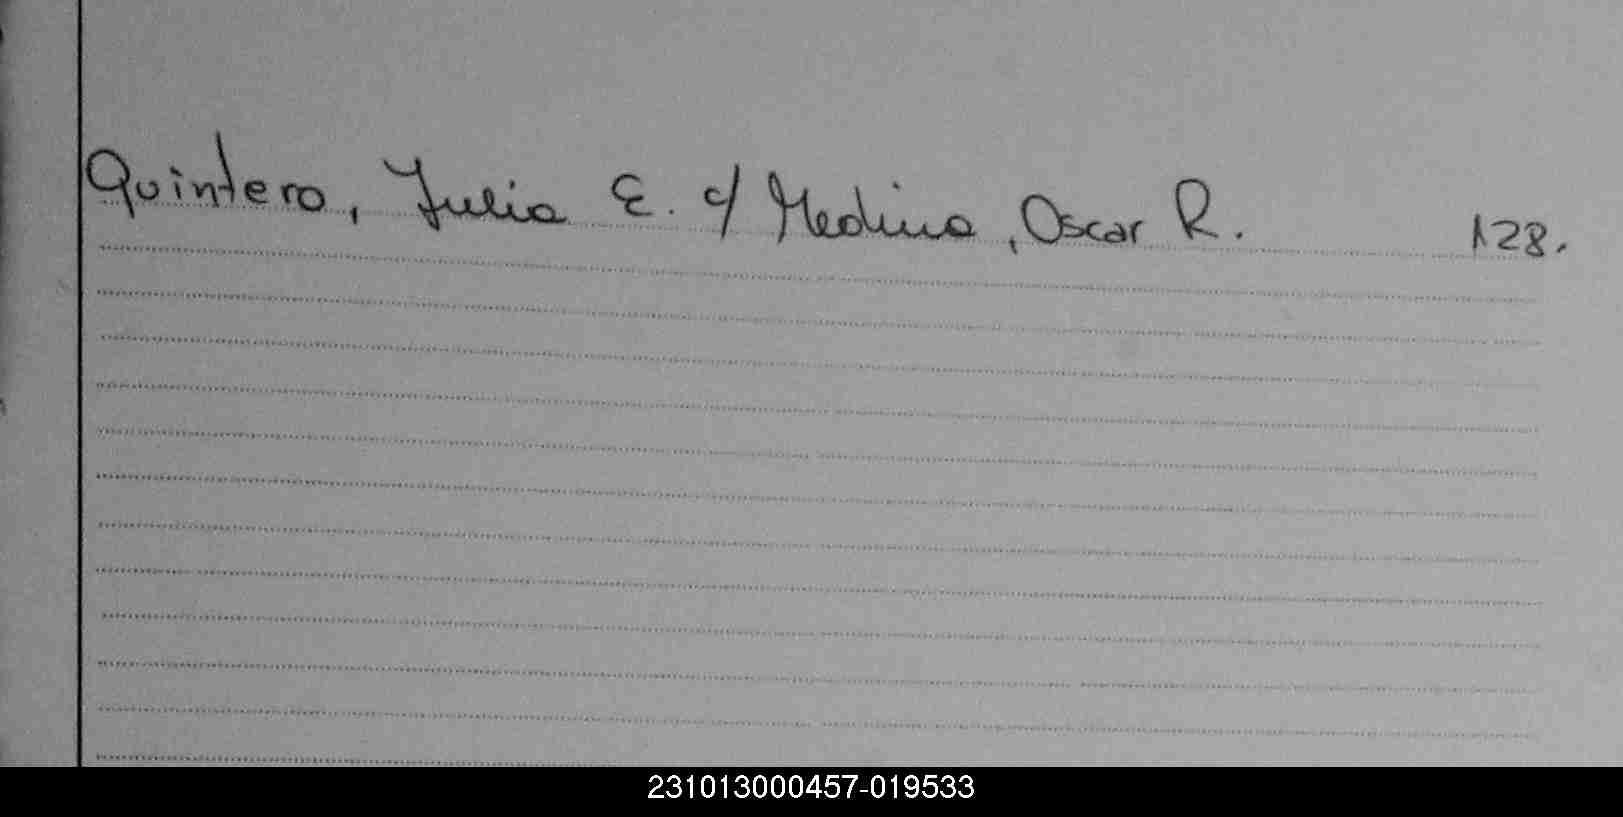 Quintero, Julia E. c/ Medina, Oscar R. 128.
231013000457-019533